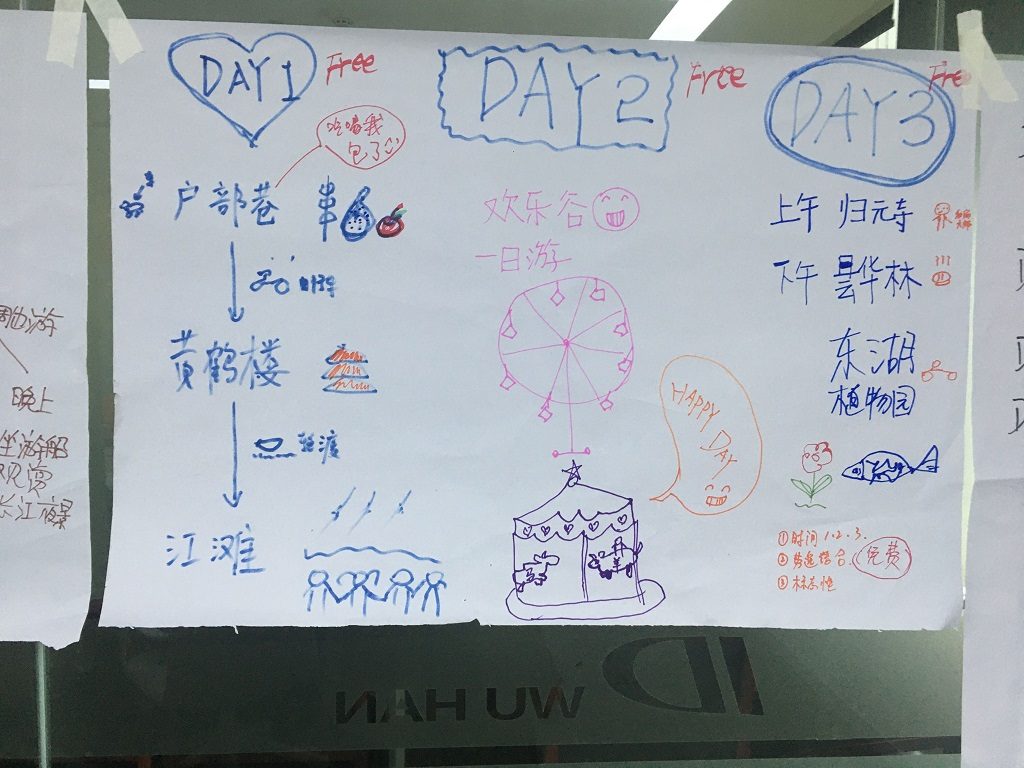 DAY1
Free
吃喝我
包了
户部巷
黄鹤楼
轮渡
江滩
DAY 2
Free
欢乐谷
一日游
HAPPY DAY
DAY 3
Free
上午 归元寺
下午 昙华林
东湖
植物园
①时间 1.2.3.
②
免费
③
游
晚上
坐游船
观赏
长江夜景
WU HAN